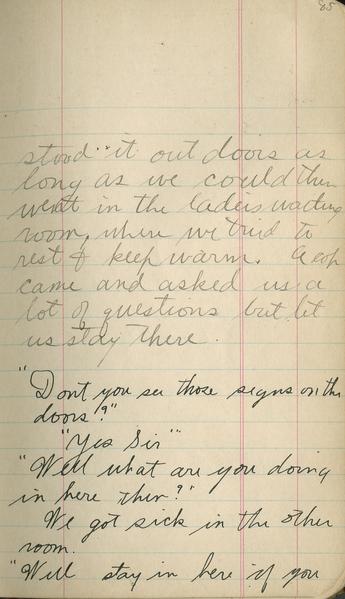 85
stood it out doors as
long as we could then
went in the ladies waiting
room, where we tried to
rest & keep warm. A cop
came and asked us a
lot of questions but let
us stay there.
"Dont you see those signs on the
doors?"
"Yes Sir"
"Well what are you doing
in here then?"
We got sick in the other
room.
"Well stay in here if you